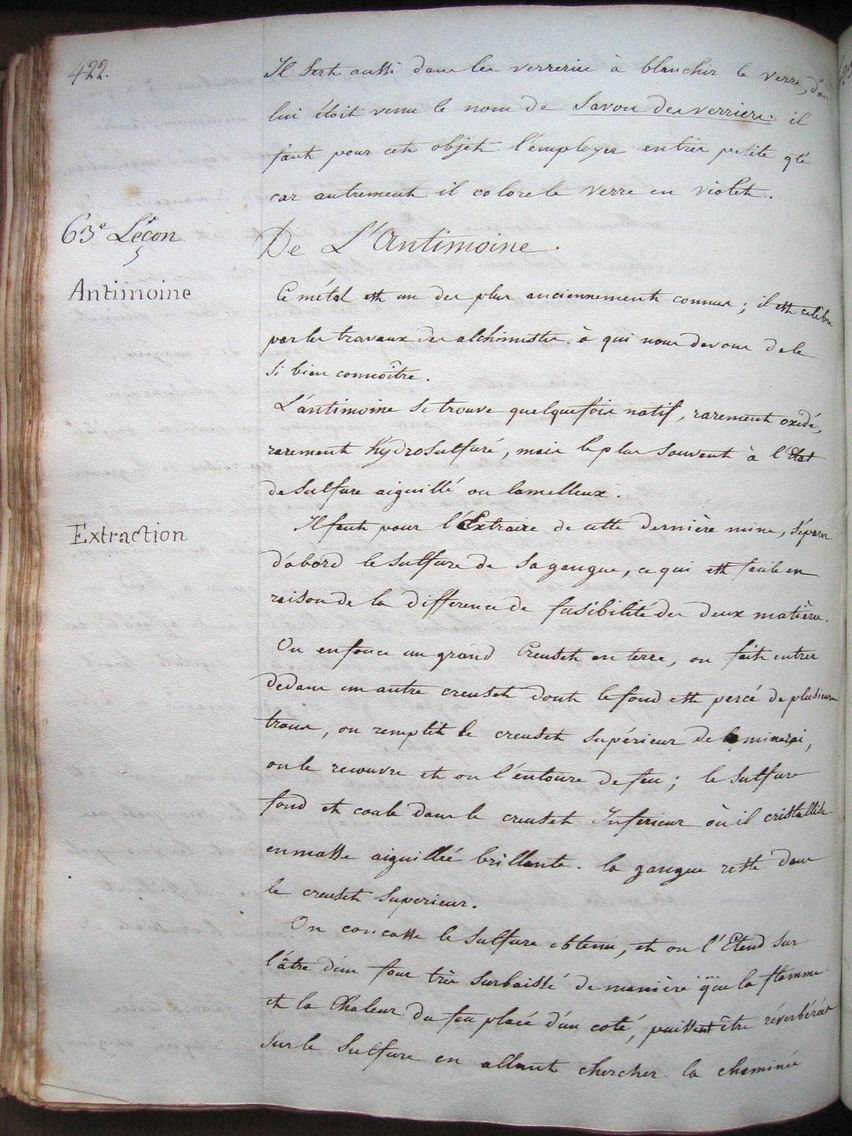 422.
Il sert aussi dans les verreries à blanchir le verre, d'où
lui étoit venu le nom de Savon des verriers. il
faut pour cet objet l'employer en très petite qté
car autrement il colore le verre en violet.
63e Leçon
De L'Antimoine.
Antimoine
Ce métal est un des plus anciennement connus ; il est celebre
par les travaux des alchimistes à qui nous devons de le
si bien connoître.
L'antimoine se trouve quelquefois natif, rarement oxidé,
rarement hydrosulfuré, mais le plus souvent à l'Etat
de sulfure aiguillé ou lamelleux.
Extraction
Il faut pour l'Extraire de cette dernière mine, séparer
d'abord le sulfure de sa gangue, ce qui est facile en
raison de la difference de fusibilité des deux matières.
On enfonce un grand Creuset en terre, on fait entrer
dedans un autre creuset dont le fond est percé de plusieurs
trous, on remplit le creuset supérieur de minerai,
on le recouvre et on l'entoure de feu ; le sulfure
fond et coule dans le creuset Inferieur où il cristallise
en masse aiguillée brillante. la gangue reste dans
le creuset superieur.
On concasse le sulfure obtenu, et on l'Etend sur
l'âtre d'un four très surbaissé de manière que la flamme
et la Chaleur du feu placé d'un coté, puissent être réverbérées
sur le sulfure en allant chercher la cheminée